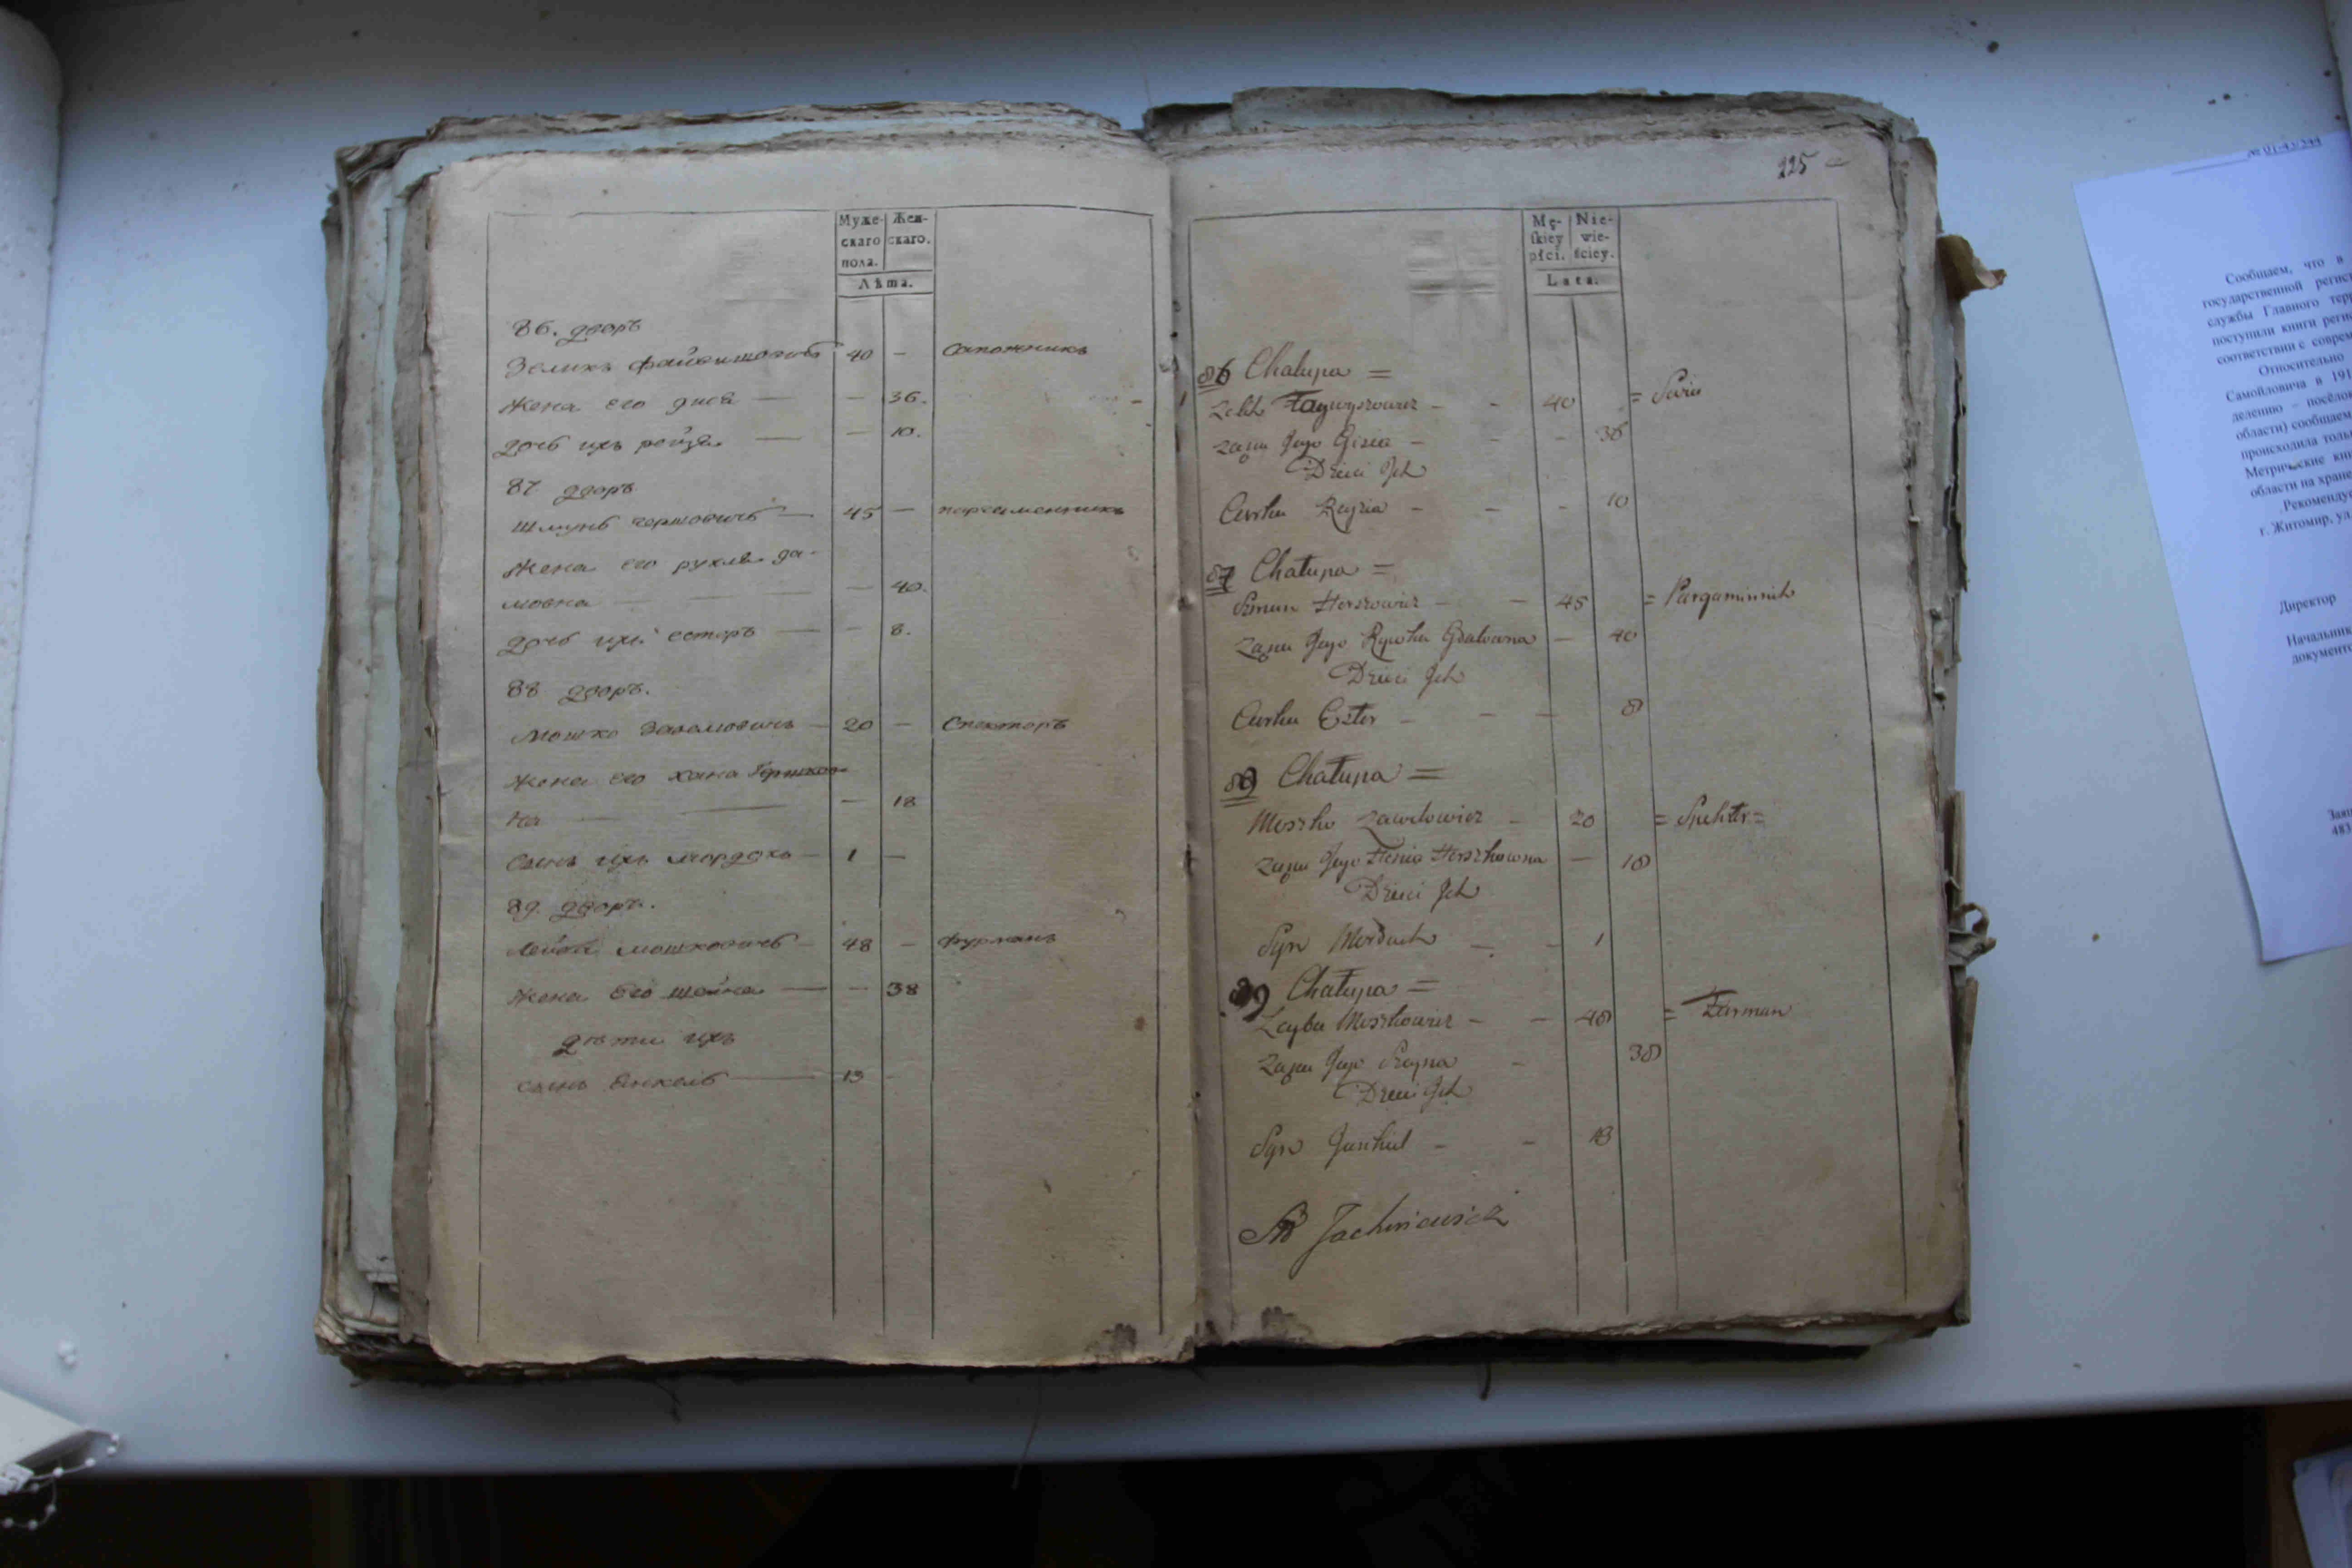 Муже-
скаго
пола.
Жен-
скаго.
Лѣта.
86. дворъ
Зеликъ файвишовичъ 40 — Сапожникъ
жена его — — 36.
дочь ихъ рейзя — — 10.
87 дворъ
шмунь гершовичъ — 45 —
жена его рухля да-
мовна — — 40.
дочь ихъ естеръ — — 8.
88 дворъ.
Мошко Завелювичъ — 20 — Спекторъ
жена его хана Гершков
на — — 18
Сынъ ихъ мордохъ — 1 —
89. дворъ.
лейба мошковичъ — 48 — фурманъ
жена его шейна — — 38
дѣти ихъ
сынъ Янкель — 13 -
225
Mę-
skiey
płci.
Nie-
wie-
ściey.
Lata.
86 Chałupa =
Zelik Faywyszowicz - - 40 =
żona Jego Gisia - - - 36
Dzieci Jch
Curka Reyzia - - - 10
87 Chałupa =
Szmun Herszowicz - - 45 = Pargaminnik
żona Jego Rywka Gdalowna - 40
Dzieci Jch
Curka Ester - - - 8
88 Chałupa =
Moszko Zawelowicz - 20 = Spektor =
żona Jego Henia Herszkowna - 18
Dzieci Jch
Syn Morduch - - 1
89 Chałupa =
Leyba Moszkowicz - - 48 = Furman
żona Jego Szeyna - 38
Dzieci Jch
Syn Jankiel - - 13
Jachimowicz
№ 01-43/244
Сообщаем, что в
государственной регист
службы Главного тер
поступили книги реги
соответствии с соврем
Относительно
Самойловича в 191
делению – посёлок
области) сообщаем
происходила толь
Метрические кни
области на хране
Рекоменду
г. Житомир, ул.
Директор
Начальник
документо
483